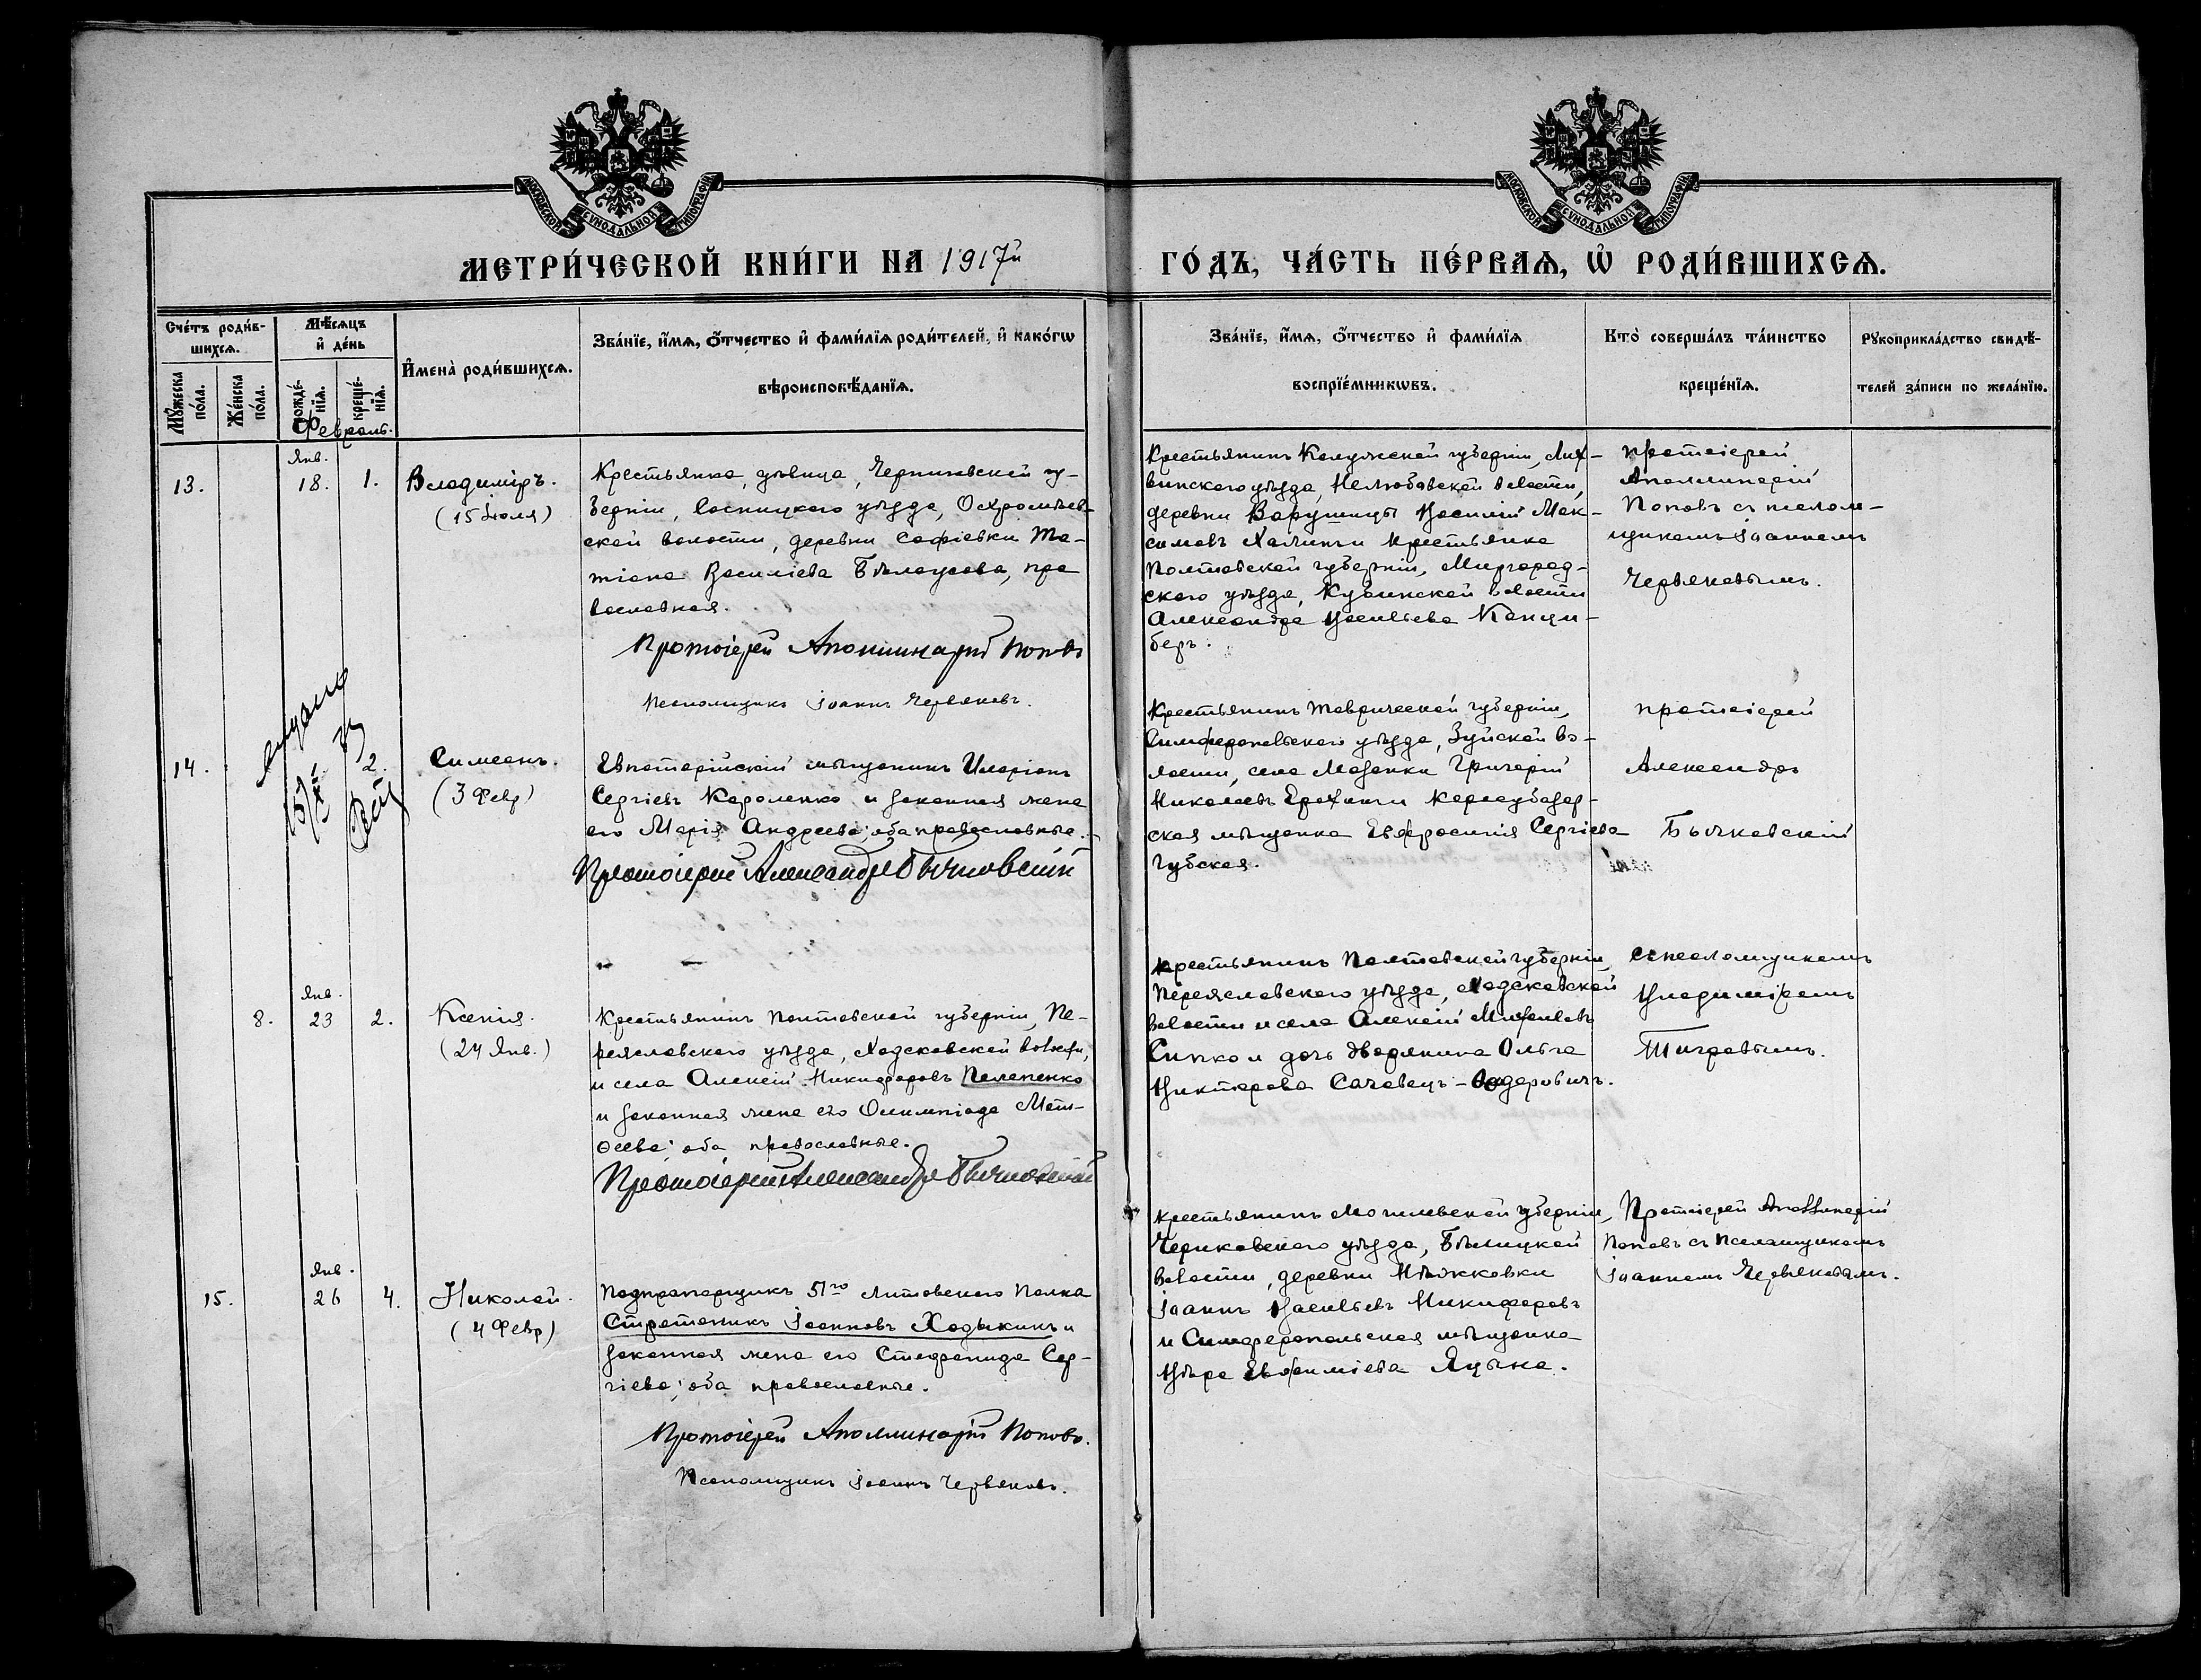 МОСКОВСКОЙ СѴНОДАЛЬНОЙ ТИПОГРАФІИ
МОСКОВСКОЙ СѴНОДАЛЬНОЙ ТИПОГРАФІИ
МЕТРИ́ЧЕСКОЙ КНИ́ГИ НА 1917й
ГО́ДЪ, ЧА́СТЬ ПЕ́РВАѦ, Ѽ РОДИ́ВШИХСѦ.
Сче́тъ роди́в-
шихсѧ.
Мꙋ́жеска по́ла.
Же́нска по́ла.
Мѣ́сѧцъ
и҆ де́нь
рожде́-нїѧ.
креще́-нїѧ.
И҆мена̀ роди́вшихсѧ.
Зва́нїе, и҆́мѧ, ѻ҆́тчество и҆ фами́лїѧ роди́телей, и҆ како́гѡ
вѣроисповѣ́данїѧ.
Зва́нїе, и҆́мѧ, ѻ҆́тчество и҆ фами́лїѧ
воспрїе́мникѡвъ.
Кто̀ соверша́лъ та́инство
креще́нїѧ.
Рꙋкоприкла́дство свидѣ́-
телей за́писи по жела́нїю.
Февраль.
13.
Янв.
18.
1.
Владиміръ.
(15 Іюля)
Крестьянка, дѣвица, Черниговской гу-
берніи, Сосницкаго уѣзда, Охромѣев-
ской волости, деревни Софіевки Та-
тіана Василіева Бѣлоусова, пра
вославная.
Протоіерей Аполлинарій Поповъ
Псаломщикъ Іоаннъ Червяковъ.
Крестьянинъ Калужской губерніи, Лих-
винскаго уѣзда, Нелюбовской волости,
деревни Варушицы Василій Мак-
симовъ Халинъ и крестьянка
Полтавской губерніи, Миргород-
скаго уѣзда, волости
Александра Васильева Канци-
беръ.
протоіерей
Аполлинарій
Поповъ съ псалом-
щикомъ Іоанномъ
Червяковымъ.
14.
выдано
2.
Симеонъ.
(3 Февр)
Евпаторійскій мѣщанинъ Иларіонъ
Сергіевъ Короленко и законная жена
его Марія Андреева; оба православные.
Протоіерей Александръ Бычковскій
Крестьянинъ Таврической губерніи,
Симферопольскаго уѣзда, Зуйской во-
лости, села Мазанки Григорій
Николаевъ Ерохинъ и карасубазар-
ская мѣщанка Евфросинія Сергіева
Губская.
протоіерей
Александръ
Бычковскій
8.
Янв.
23
2.
Ксенія.
(24 Янв.)
Крестьянинъ Полтавской губерніи, Пе-
реяславскаго уѣзда, Хоцковской волости,
и села Алексій Никифоровъ Пелепенко
и законная жена его Олимпіада Мат-
ѳеева; оба православные.
Протоіерей Александръ Бычковскій
крестьянинъ Полтавской губерніи,
Переяславскаго уѣзда, Хоцковской
волости и села Алексій Михаиловъ
Сипко и дочь дворянина Ольга
Викторова Саковецъ-Ѳодоровичъ.
съ псаломщикомъ
Владиміромъ
Тигровымъ.
15.
Янв.
26
4.
Николай.
(4 Февр)
Подпрапорщикъ 51го Литовскаго Полка
Стратоникъ Іоанновъ Ходыкинъ и
законная жена его Стефанида Сер-
гіева; оба православные.
Протоіерей Аполлинарій Поповъ.
Псаломщикъ Іоаннъ Червяковъ.
крестьянинъ Могилевской губерніи,
Чериковскаго уѣзда, Бѣлицкой
волости, деревни
Іоаннъ Васильевъ Никифоровъ
и Симферопольская мѣщанка
Вѣра Евфиміева Яцына.
Протоіерей Аполлинарій
Поповъ съ псаломщикомъ
Іоанномъ Червяковымъ.